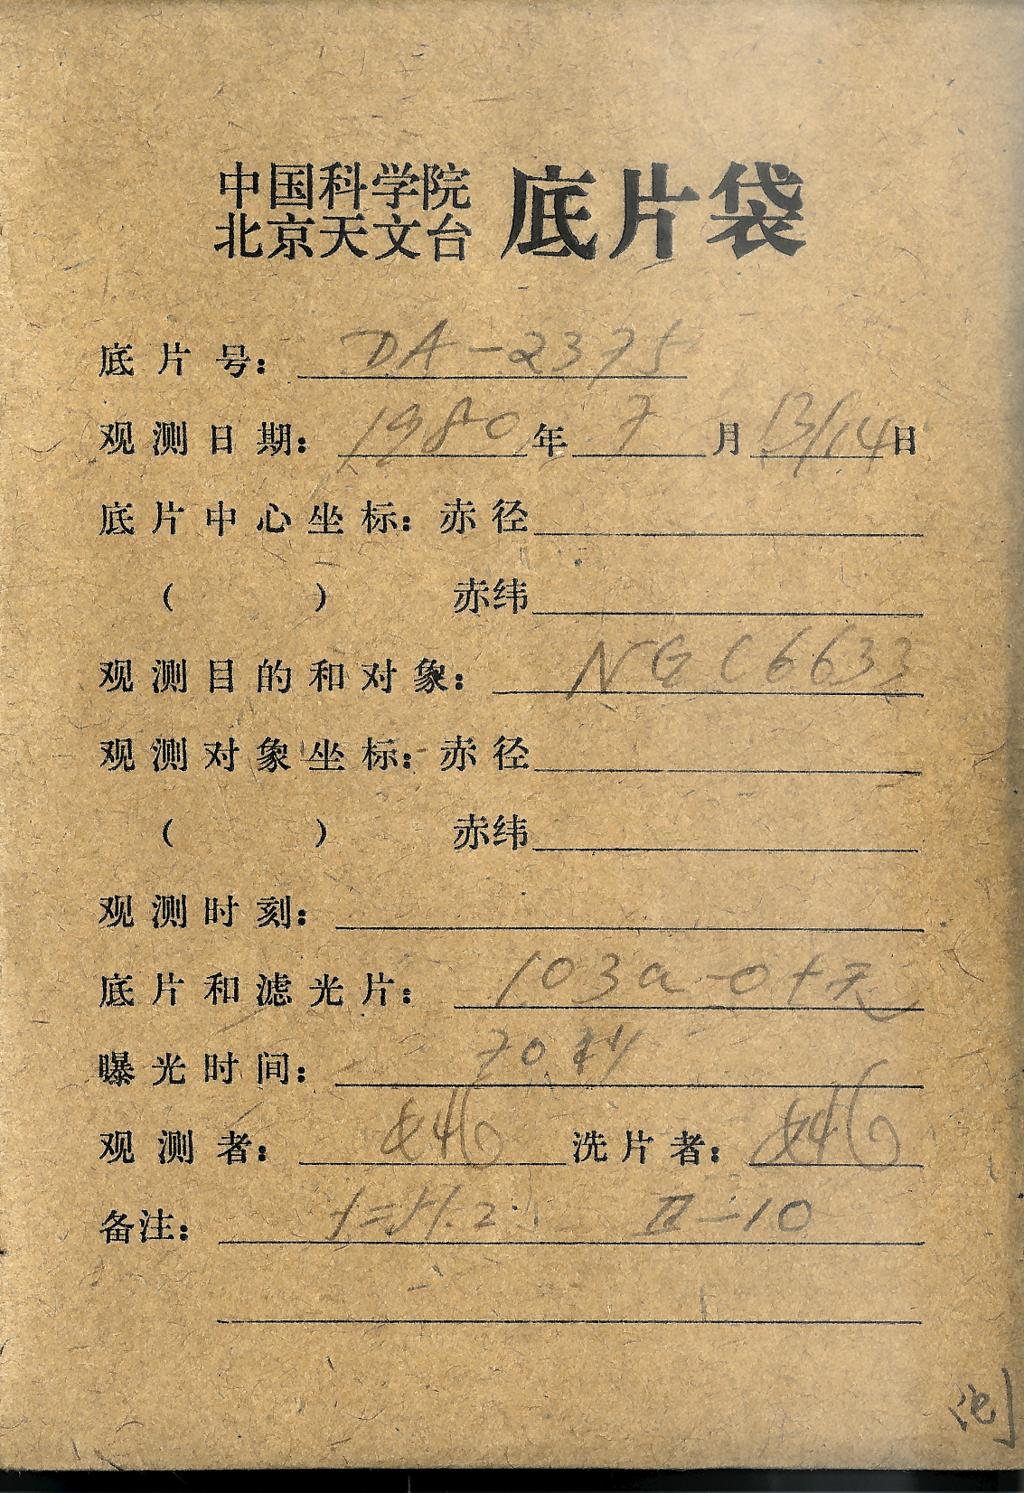 中国科学院
北京天文台 底片袋
底片号: DA-2375
观测日期: 1980年 7 月 13/14 日
底片中心坐标: 赤径
( ) 赤纬
观测目的和对象: NGC6633
观测对象坐标: 赤径
( ) 赤纬
观测时刻:
底片和滤光片: 103a-O+无
曝光时间: 70秒
观测者: 洗片者:
备注: II-10